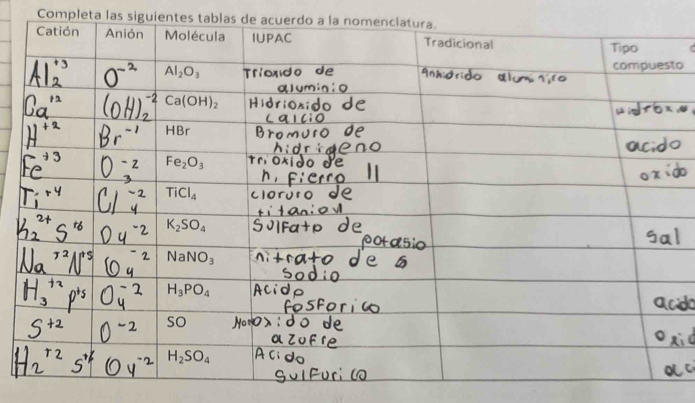 Completa las siguientes tablas de acuerdo a la nomenclatura.
Catión Anión Molécula IUPAC Tradicional Tipo compuesto
Al₂⁺³ O⁻² Al₂O₃ Trioxido de aluminio anhidrido
Ca⁺² (OH)₂⁻² Ca(OH)₂ Hidrioxido de calcio
H⁺² Br⁻¹ HBr Bromuro de hidrigeno acido
Fe⁺³ O₃⁻² Fe₂O₃ trioxido de h, fierro II oxido
Ti⁺⁴ Cl₄⁻² TiCl₄ cloruro de
K₂²⁺ S⁺⁶ O₄⁻² K₂SO₄ Sulfato de potasio sal
Na⁺² N⁺⁵ NaNO₃ nitrato de sodio
H₃⁺² P⁺⁵ O₄⁻² H₃PO₄ Acido fosforico acido
S⁺² O⁻² SO Monoxido de azufre
H₂⁺² O₄⁻² H₂SO₄ Acido sulfurico